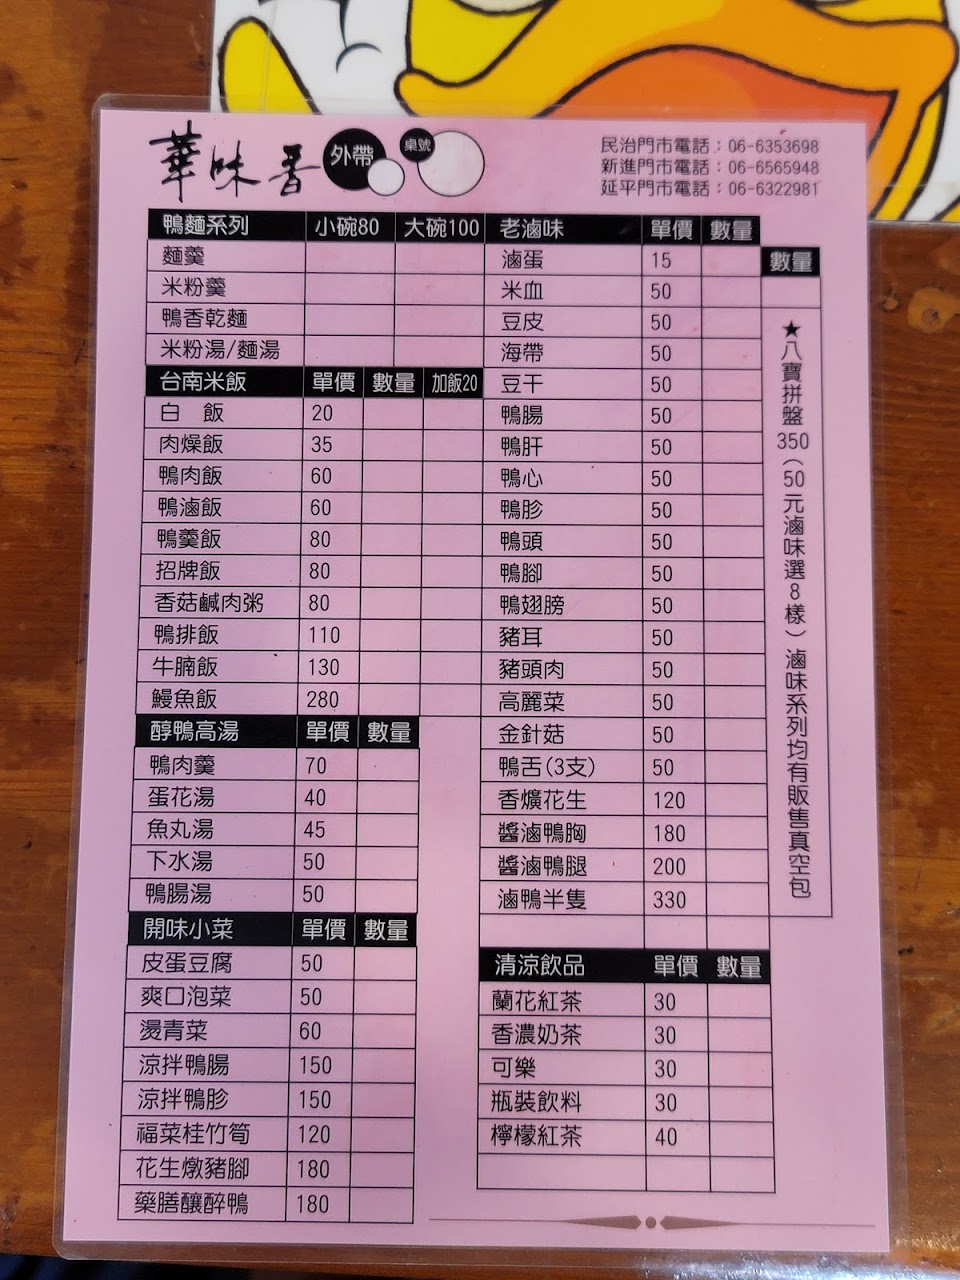 華味香 外帶 桌號
民治門市電話：06-6353698
新進門市電話：06-6565948
延平門市電話：06-6322981
鴨麵系列 小碗80 大碗100
麵羹
米粉羹
鴨香乾麵
米粉湯/麵湯
台南米飯 單價 數量 加飯20
白 飯 20
肉燥飯 35
鴨肉飯 60
鴨滷飯 60
鴨羹飯 80
招牌飯 80
香菇鹹肉粥 80
鴨排飯 110
牛腩飯 130
鰻魚飯 280
醇鴨高湯 單價 數量
鴨肉羹 70
蛋花湯 40
魚丸湯 45
下水湯 50
鴨腸湯 50
開味小菜 單價 數量
皮蛋豆腐 50
爽口泡菜 50
燙青菜 60
涼拌鴨腸 150
涼拌鴨胗 150
福菜桂竹筍 120
花生燉豬腳 180
藥膳釀醉鴨 180
老滷味 單價 數量
滷蛋 15
米血 50
豆皮 50
海帶 50
豆干 50
鴨腸 50
鴨肝 50
鴨心 50
鴨胗 50
鴨頭 50
鴨腳 50
鴨翅膀 50
豬耳 50
豬頭肉 50
高麗菜 50
金針菇 50
鴨舌(3支) 50
香爌花生 120
醬滷鴨胸 180
醬滷鴨腿 200
滷鴨半隻 330
數量
★八寶拼盤350(50元滷味選8樣)滷味系列均有販售真空包
清涼飲品 單價 數量
蘭花紅茶 30
香濃奶茶 30
可樂 30
瓶裝飲料 30
檸檬紅茶 40